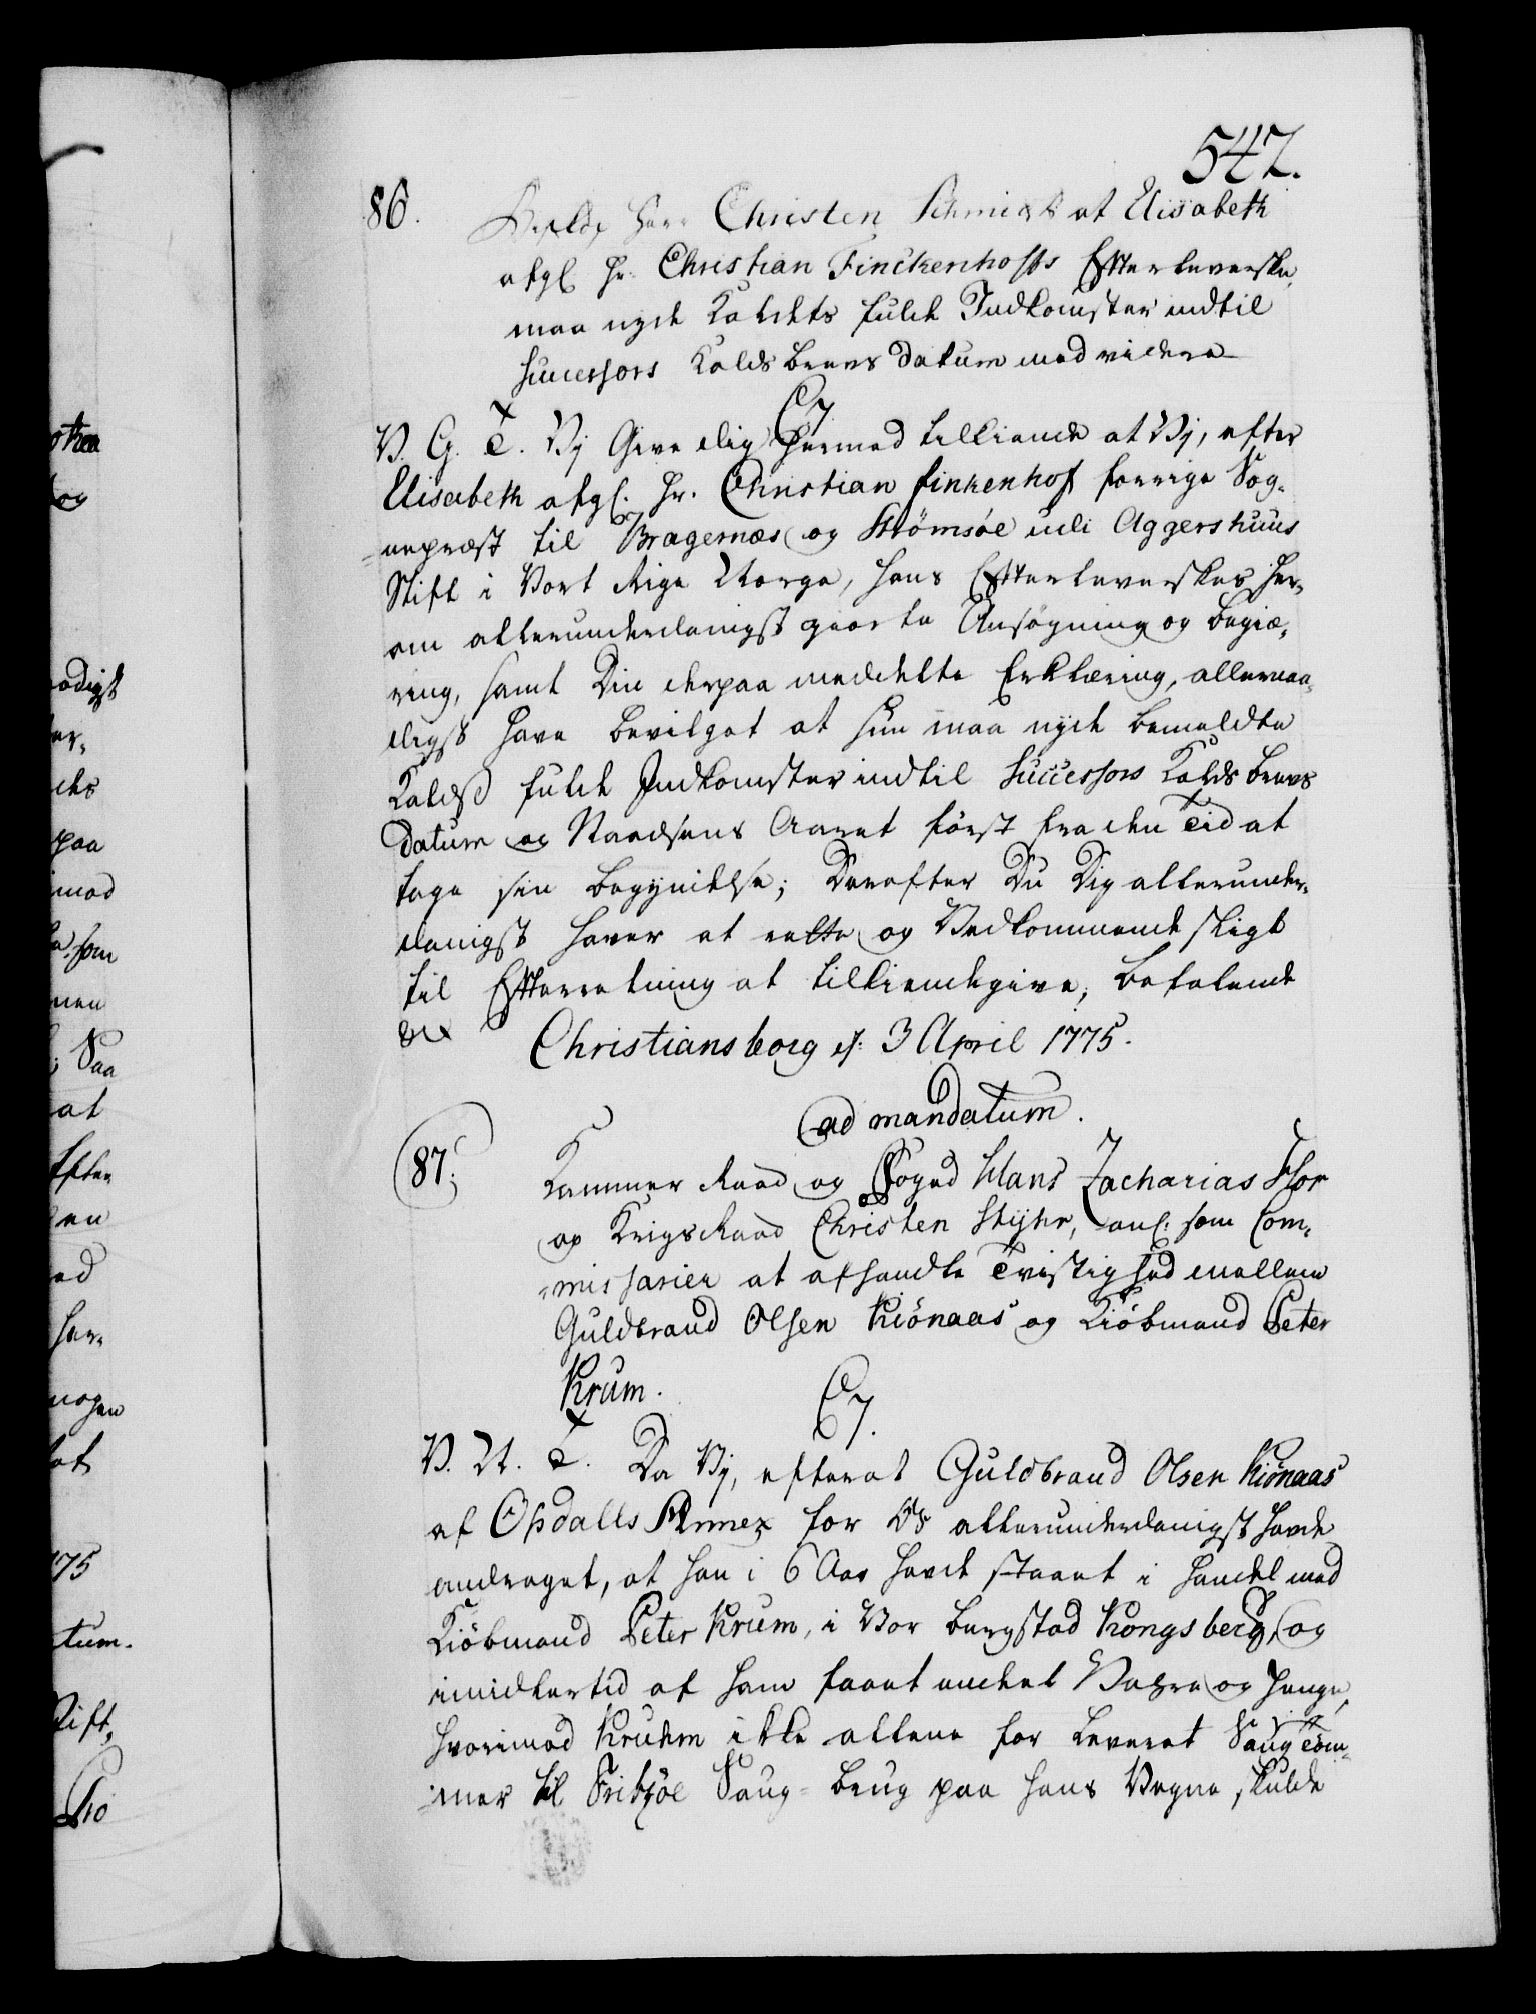 542.
86. Bispen Herr Christen Schmidt at Elisabeth
afgl. Hr. Christian Finckenhoffs Efterleverske,
maa nyde Kaldets fulde Indkomster indtil
Successors Kalds brevs datum med videre
C7
V. G. T. Vj Give dig hermed tilkiende at Vj, efter
Elisabeth afgl. Hr. Christian finkenhof forrige Sog-
nepræst til Bragernæs og Strømsøe udi Aggershuus
Stift i Vort Rige Norge, hans Efterleverskes her-
om allerunderdanigst giorte Ansøgning og begiæ-
ring, samt Din derpaa meddelte Erklæring, allernaa-
digst have bevilget at hun maa nyde bemeldte
Kalds fulde Indkomster indtil Successors Kalds brevs
Datum og Naadsens Aaret først fra den Tid at
tage sin begyndelse; Derefter Du Dig allerunder-
danigst haver at rette og Vedkommende sligt
til Efterretning at tilkiendegive, befalende
&c Christiansborg d: 3 April 1775.
ad mandatum.
87. Kammer Raad og Foged Hans Zacharias Flor
og Krigs Raad Christen Styhr, anl. som Com-
missarier at afhandle Tvistighed mellem
Guldbrand Olsen Kiönaas og Kiöbmand Peter
Krum. C7.
V. N. T. Da Vj, efterat Guldbrand Olsen Kiönaas
af Opdalls Annex for Os allerunderdanigst havde
andraget, at han i 6 Aar havde staaet i handel med
Kiöbmand Peter Krum, i Vor bergstad Kongsberg, og
imidlertid af ham faaet endel Vahre og Penge,
hvorimod Kruhm ikke allene for leveret Saug Töm-
mer til Fritzöe Saug-brug paa hans Vegne, skulde